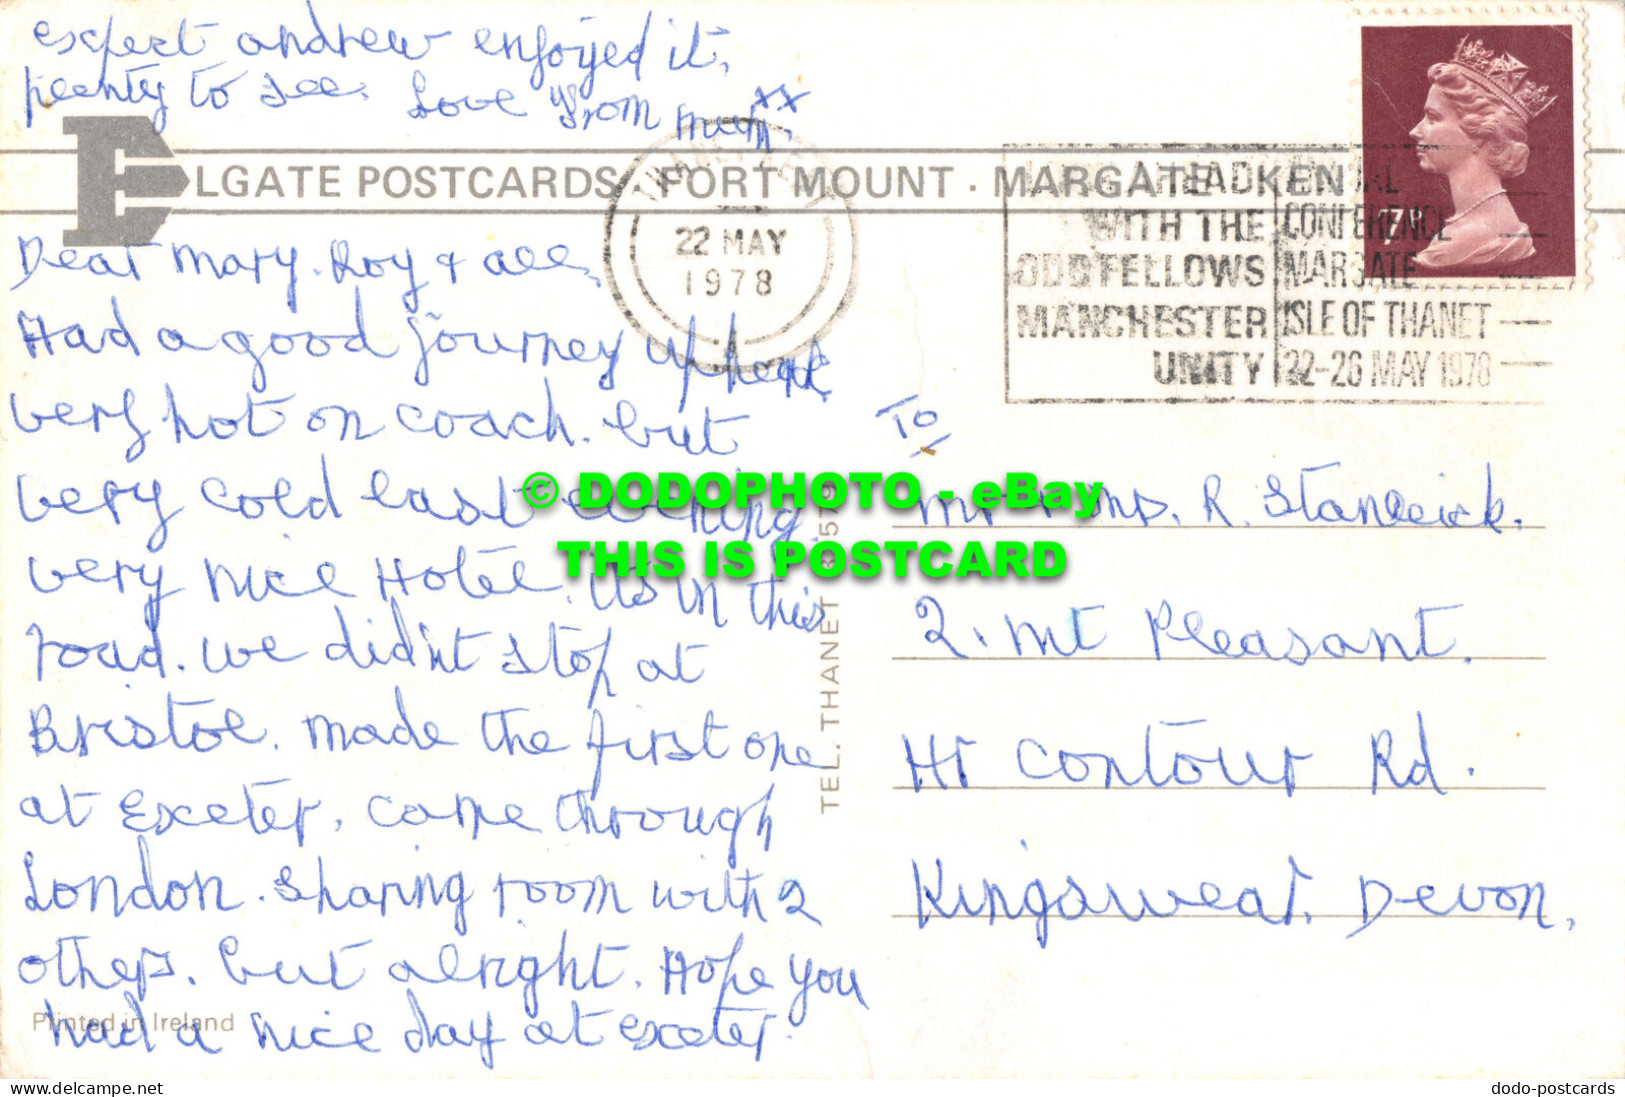 expect andrew enjoyed it,
plenty to see. Love from mum xx
ELGATE POSTCARDS · FORT MOUNT · MARGATE
22 MAY
1978
AHEAD
WITH THE
ODDFELLOWS
MANCHESTER
UNITY
CONFERENCE
MARGATE
ISLE OF THANET
22-26 MAY 1978
7P
Dear Mary. Roy & all,
Had a good journey up here
very hot on coach. but
very cold last evening.
very nice Hotel. its in this
road. we did'nt stop at
Bristol. made the first one
at Exeter, came through
London. Sharing room with 2
others. but alright. Hope you
had a nice day at exeter.
Printed in Ireland
TEL. THANET
To
Mr & Mrs. R.
2. Mt Pleasant.
Hr Contour Rd.
Kingswear. Devon.
© DODOPHOTO - eBay
THIS IS POSTCARD
www.delcampe.net
dodo-postcards